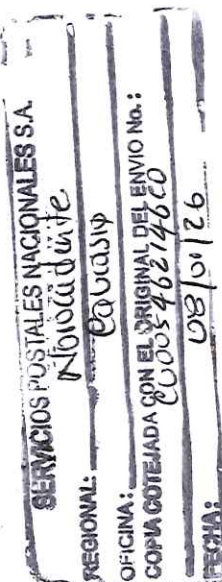 SERVICIOS POSTALES NACIONALES S.A.
REGIONAL: Noroccidente
OFICINA:
COPIA COTEJADA CON EL ORIGINAL DEL ENVIO No.:
CU005462146CO
FECHA: 08/01/26